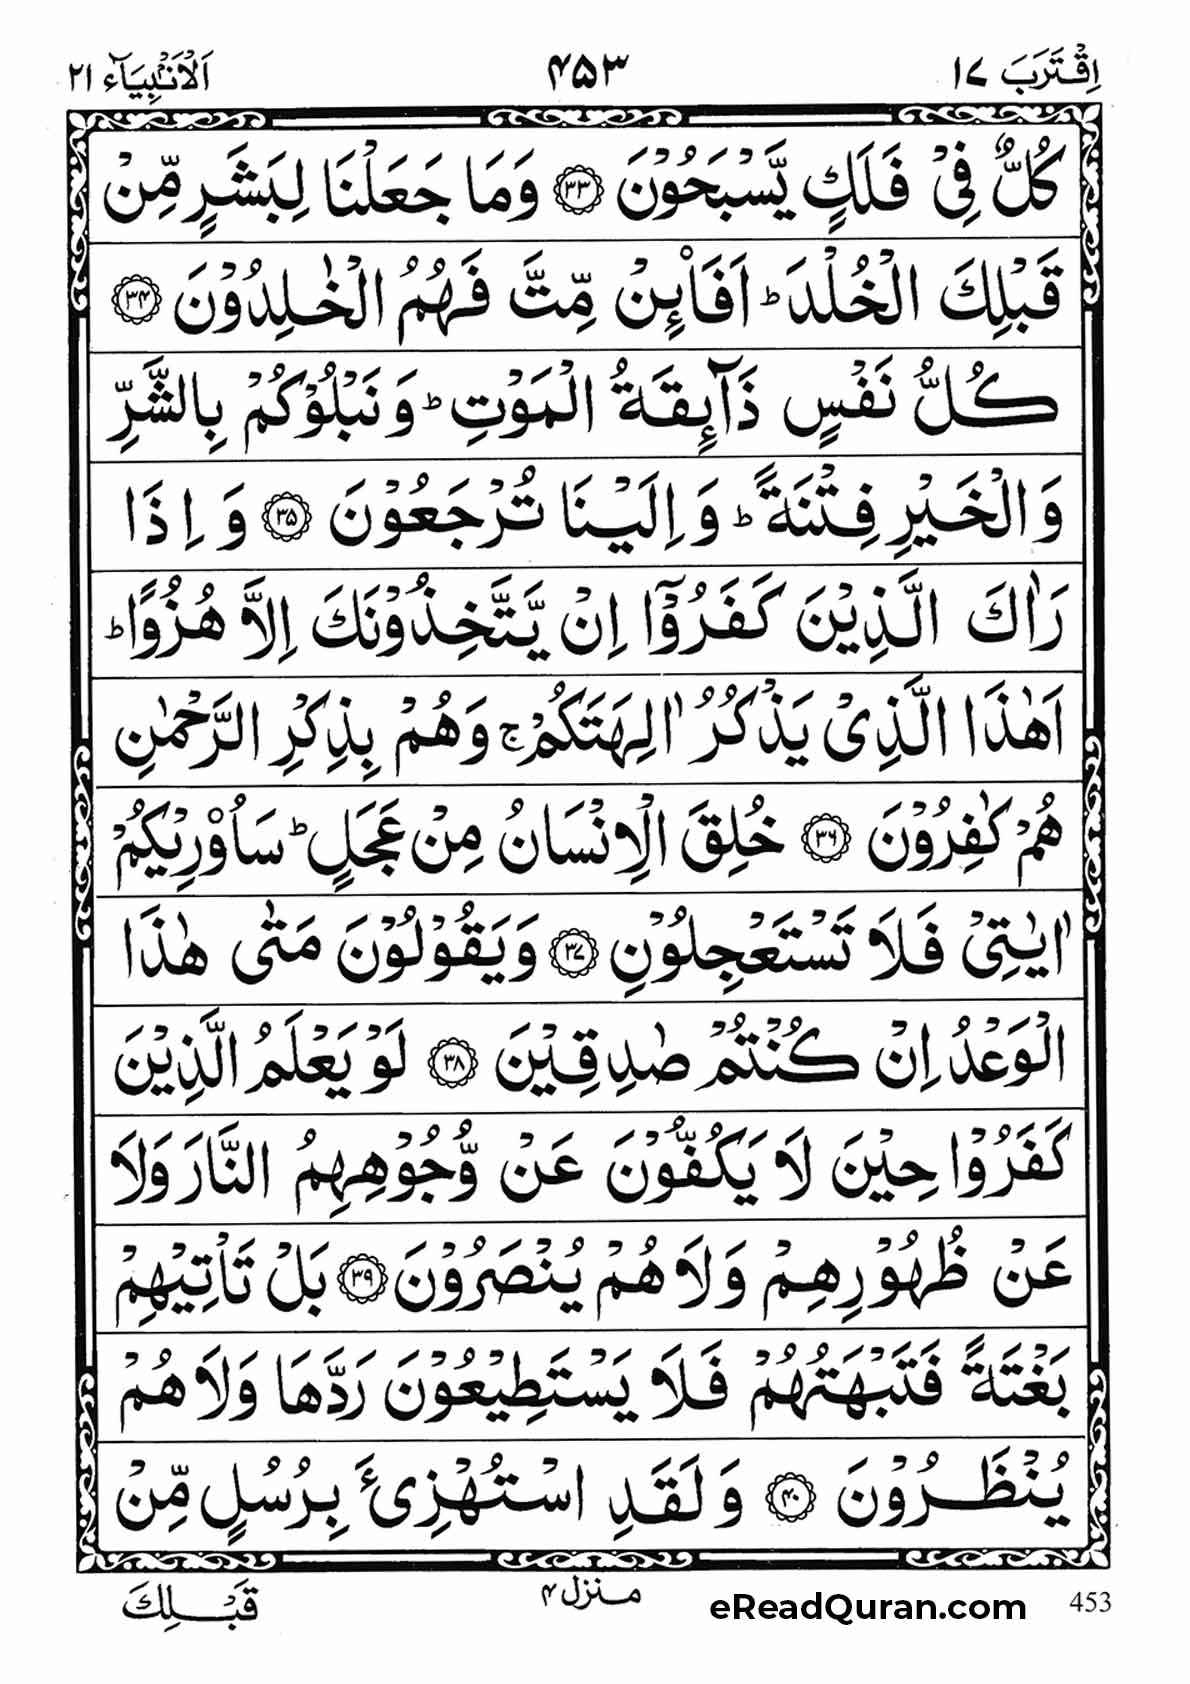 اِقْتَرَبَ ١٧ ۴۵۳ اَلْاَنْۢبِيَآء ٢١
كُلٌّ فِيْ فَلَكٍ يَّسْبَحُوْنَ ﴿۳۳﴾ وَمَا جَعَلْنَا لِبَشَرٍ مِّنْ
قَبْلِكَ الْخُلْدَ ؕ اَفَا۟ئِنْ مِّتَّ فَهُمُ الْخٰلِدُوْنَ ﴿۳۴﴾
كُلُّ نَفْسٍ ذَآئِقَةُ الْمَوْتِ ؕ وَنَبْلُوْكُمْ بِالشَّرِّ
وَالْخَيْرِ فِتْنَةً ؕ وَاِلَيْنَا تُرْجَعُوْنَ ﴿۳۵﴾ وَاِذَا
رَاٰكَ الَّذِيْنَ كَفَرُوْۤا اِنْ يَّتَّخِذُوْنَكَ اِلَّا هُزُوًا ؕ
اَهٰذَا الَّذِيْ يَذْكُرُ اٰلِهَتَكُمْ ۚ وَهُمْ بِذِكْرِ الرَّحْمٰنِ
هُمْ كٰفِرُوْنَ ﴿۳۶﴾ خُلِقَ الْاِنْسَانُ مِنْ عَجَلٍ ؕ سَاُورِيْكُمْ
اٰيٰتِيْ فَلَا تَسْتَعْجِلُوْنِ ﴿۳۷﴾ وَيَقُوْلُوْنَ مَتٰى هٰذَا
الْوَعْدُ اِنْ كُنْتُمْ صٰدِقِيْنَ ﴿۳۸﴾ لَوْ يَعْلَمُ الَّذِيْنَ
كَفَرُوْا حِيْنَ لَا يَكُفُّوْنَ عَنْ وُّجُوْهِهِمُ النَّارَ وَلَا
عَنْ ظُهُوْرِهِمْ وَلَا هُمْ يُنْصَرُوْنَ ﴿۳۹﴾ بَلْ تَاْتِيْهِمْ
بَغْتَةً فَتَبْهَتُهُمْ فَلَا يَسْتَطِيْعُوْنَ رَدَّهَا وَلَا هُمْ
يُنْظَرُوْنَ ﴿۴۰﴾ وَلَقَدِ اسْتُهْزِئَ بِرُسُلٍ مِّنْ
قَبْلِكَ منزل ۴ eReadQuran.com 453